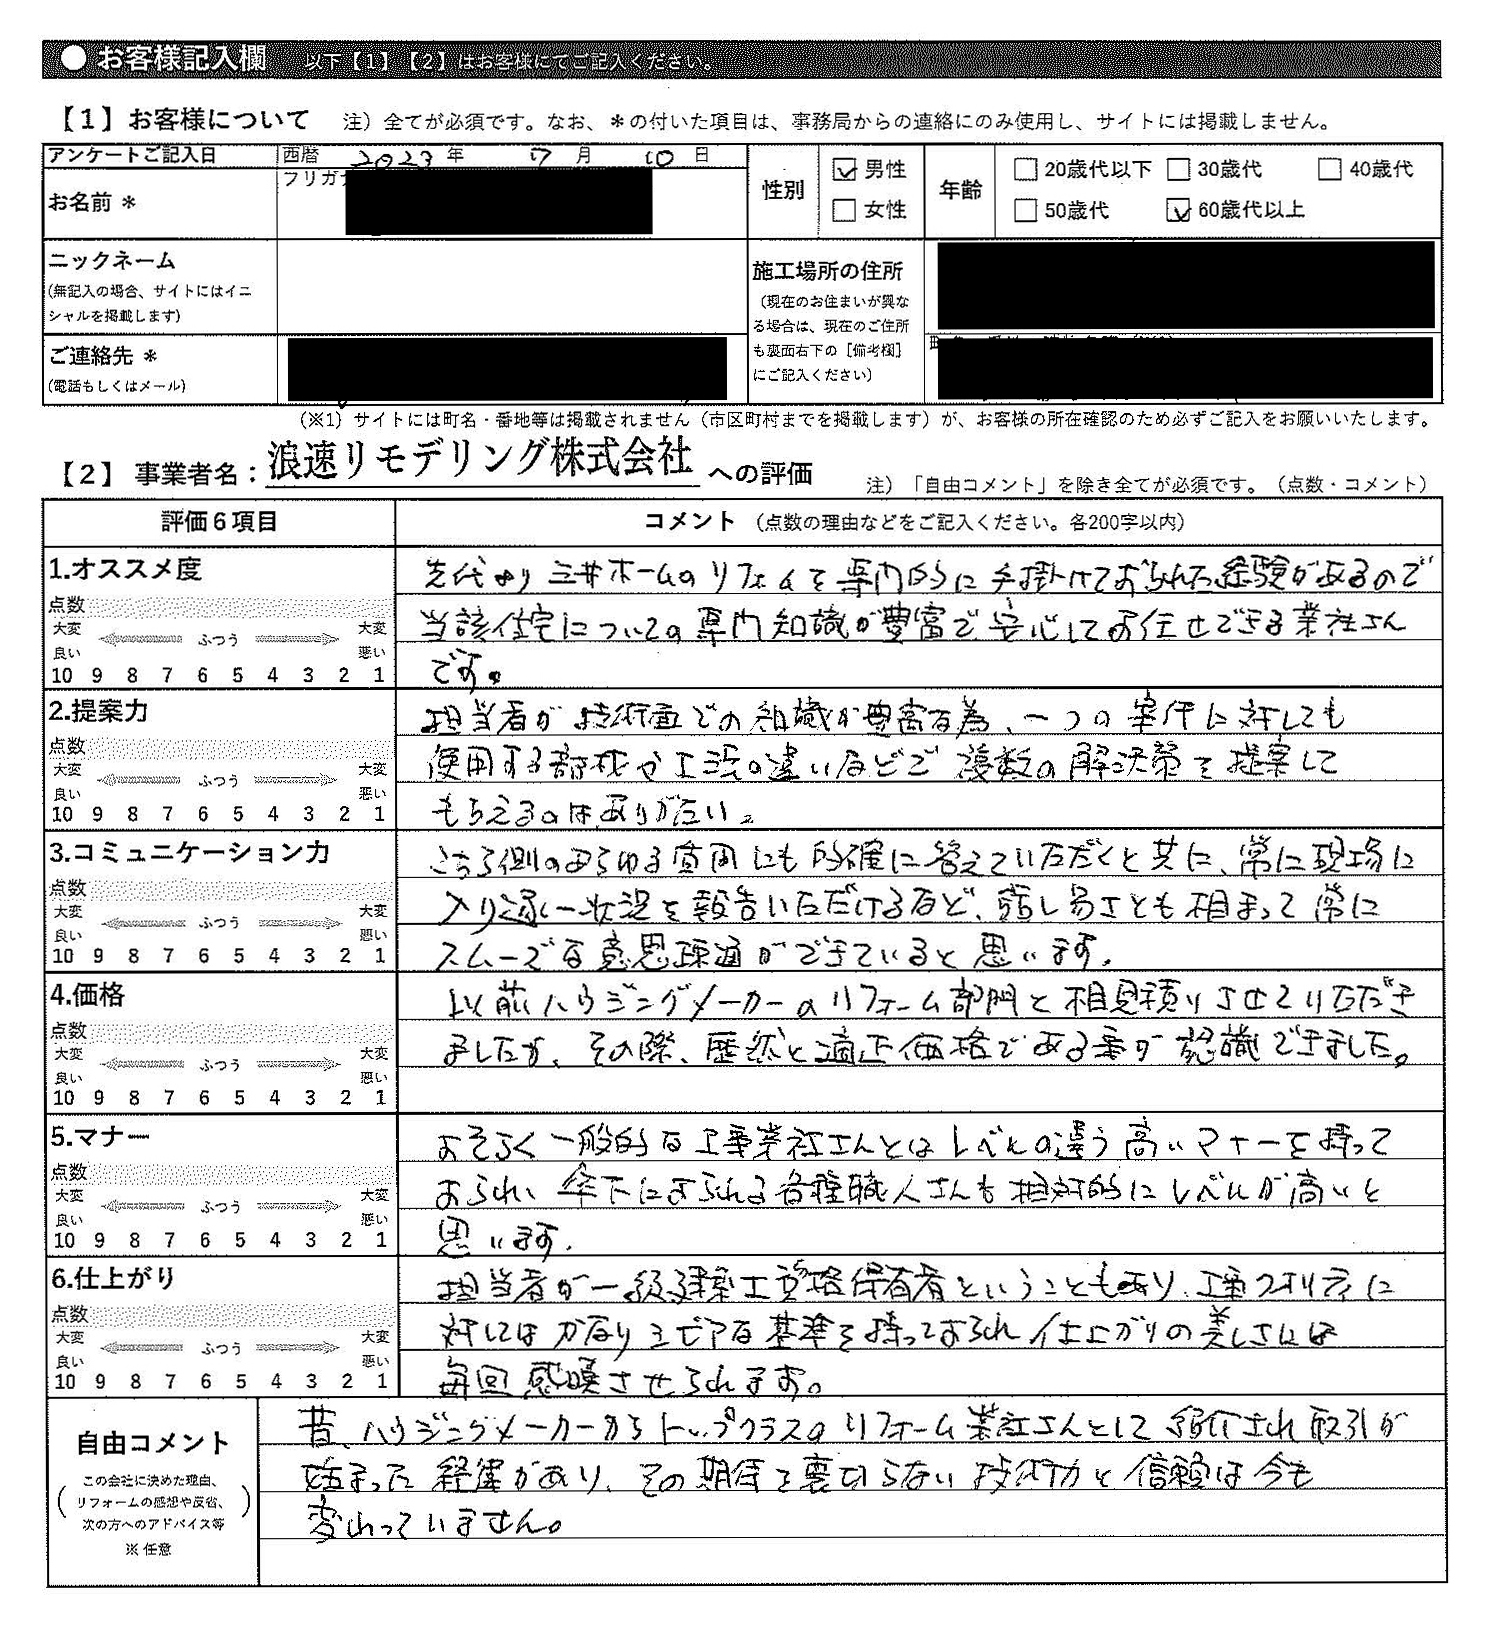 ● お客様記入欄 以下【1】【2】はお客様にてご記入ください。
【1】お客様について 注）全てが必須です。なお、＊の付いた項目は、事務局からの連絡にのみ使用し、サイトには掲載しません。
アンケートご記入日 西暦 2023 年 7 月 10 日
フリガナ
お名前 ＊
性別 ☑ 男性 □ 女性
年齢 □ 20歳代以下 □ 30歳代 □ 40歳代
□ 50歳代 ☑ 60歳代以上
ニックネーム
(無記入の場合、サイトにはイニ
シャルを掲載します)
施工場所の住所
（現在のお住まいが異な
る場合は、現在のご住所
も裏面右下の［備考欄］
にご記入ください）
ご連絡先 ＊
(電話もしくはメール)
（※1）サイトには町名・番地等は掲載されません（市区町村までを掲載します）が、お客様の所在確認のため必ずご記入をお願いいたします。
【2】 事業者名：浪速リモデリング株式会社 への評価
注）「自由コメント」を除き全てが必須です。（点数・コメント）
評価６項目 コメント （点数の理由などをご記入ください。各200字以内）
1.オススメ度
点数
大変 ふつう 大変
良い 悪い
10 9 8 7 6 5 4 3 2 1
先代より三井ホームのリフォームを専門的に手掛けておられた経験があるので
当該住宅についての専門知識が豊富で安心してお任せできる業社さん
です。
2.提案力
点数
大変 ふつう 大変
良い 悪い
10 9 8 7 6 5 4 3 2 1
担当者が技術面での知識が豊富な為、一つの案件に対しても
使用する部材や工法の違いなどで複数の解決策を提案して
もらえるのはありがたい。
3.コミュニケーション力
点数
大変 ふつう 大変
良い 悪い
10 9 8 7 6 5 4 3 2 1
こちら側のあらゆる質問にも的確に答えていただくと共に、常に現場に
入り逐一状況を報告いただけるなど、話し易さとも相まって常に
スムーズな意思疎通ができていると思います。
4.価格
点数
大変 ふつう 大変
良い 悪い
10 9 8 7 6 5 4 3 2 1
以前ハウジングメーカーのリフォーム部門と相見積りさせていただき
ましたが、その際、歴然と適正価格である事が認識できました。
5.マナー
点数
大変 ふつう 大変
良い 悪い
10 9 8 7 6 5 4 3 2 1
おそらく一般的な工事業社さんとはレベルの違う高いマナーを持って
おられ、傘下におられる各種職人さんも相対的にレベルが高いと
思います。
6.仕上がり
点数
大変 ふつう 大変
良い 悪い
10 9 8 7 6 5 4 3 2 1
担当者が一級建築士資格保有者ということもあり、工事クオリティに
対してはかなりシビアな基準を持っておられ仕上がりの美しさには
毎回感嘆させられます。
自由コメント
この会社に決めた理由、
リフォームの感想や反省、
次の方へのアドバイス等
※ 任意
昔、ハウジングメーカーからトップクラスのリフォーム業社さんとして紹介され取引が
始まった経緯があり、その期待を裏切らない技術力と信頼は今も
変わっていません。